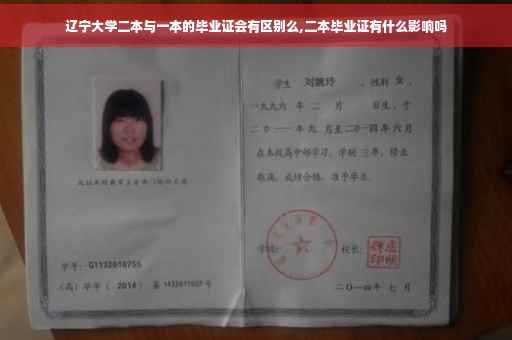 辽宁大学二本与一本的毕业证会有区别么,二本毕业证有什么影响吗
学生 刘婉玲 ,性别 女 ,
一九九六 年 二 月 日生,于
二〇一一 年 九 月至 二〇一四 年 六 月
在本校高中部学习,学制 三 年,修业
期满,成绩合格,准予毕业。
学号: G1132010755
(高)毕字( 2014 )第 1432011027 号
学校:
校长:
二〇一四 年 七 月